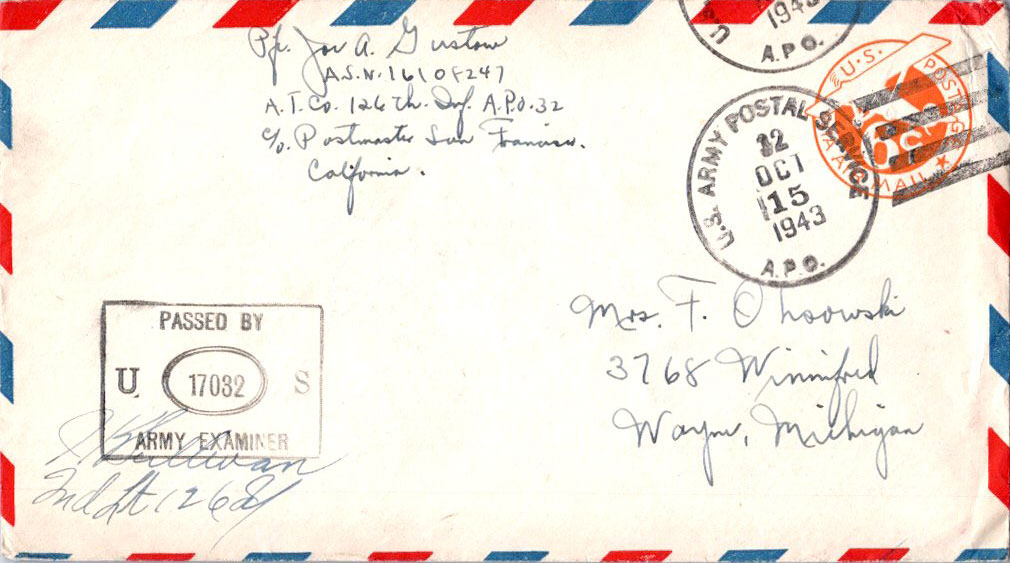 Pfc. Joe A. Gustow
A.S.N. 16108247
A.T. Co. 126 th. Inf. A.P.O. 32
c/o. Postmaster San Francisco.
California.
U.S.
1943
A.P.O.
U.S. POSTAGE
VIA AIR MAIL
U.S. ARMY POSTAL SERVICE
12
OCT
15
1943
A.P.O.
Mrs. F. Olsowski
3768 Winnifred
Wayne, Michigan
PASSED BY
U 17032 S
ARMY EXAMINER
Sullivan
2nd Lt 126